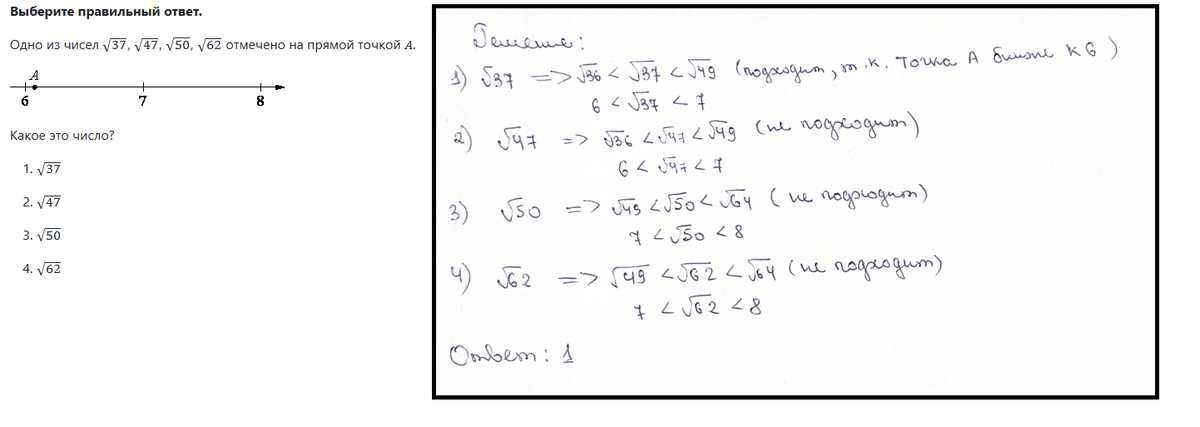 Выберите правильный ответ.
Одно из чисел √37, √47, √50, √62 отмечено на прямой точкой A.
A
6 7 8
Какое это число?
1. √37
2. √47
3. √50
4. √62
Решение:
1) √37 => √36 < √37 < √49 (подходит, т.к. точка А ближе к 6)
6 < √37 < 7
2) √47 => √36 < √47 < √49 (не подходит)
6 < √47 < 7
3) √50 => √49 < √50 < √64 (не подходит)
7 < √50 < 8
4) √62 => √49 < √62 < √64 (не подходит)
7 < √62 < 8
Ответ: 1